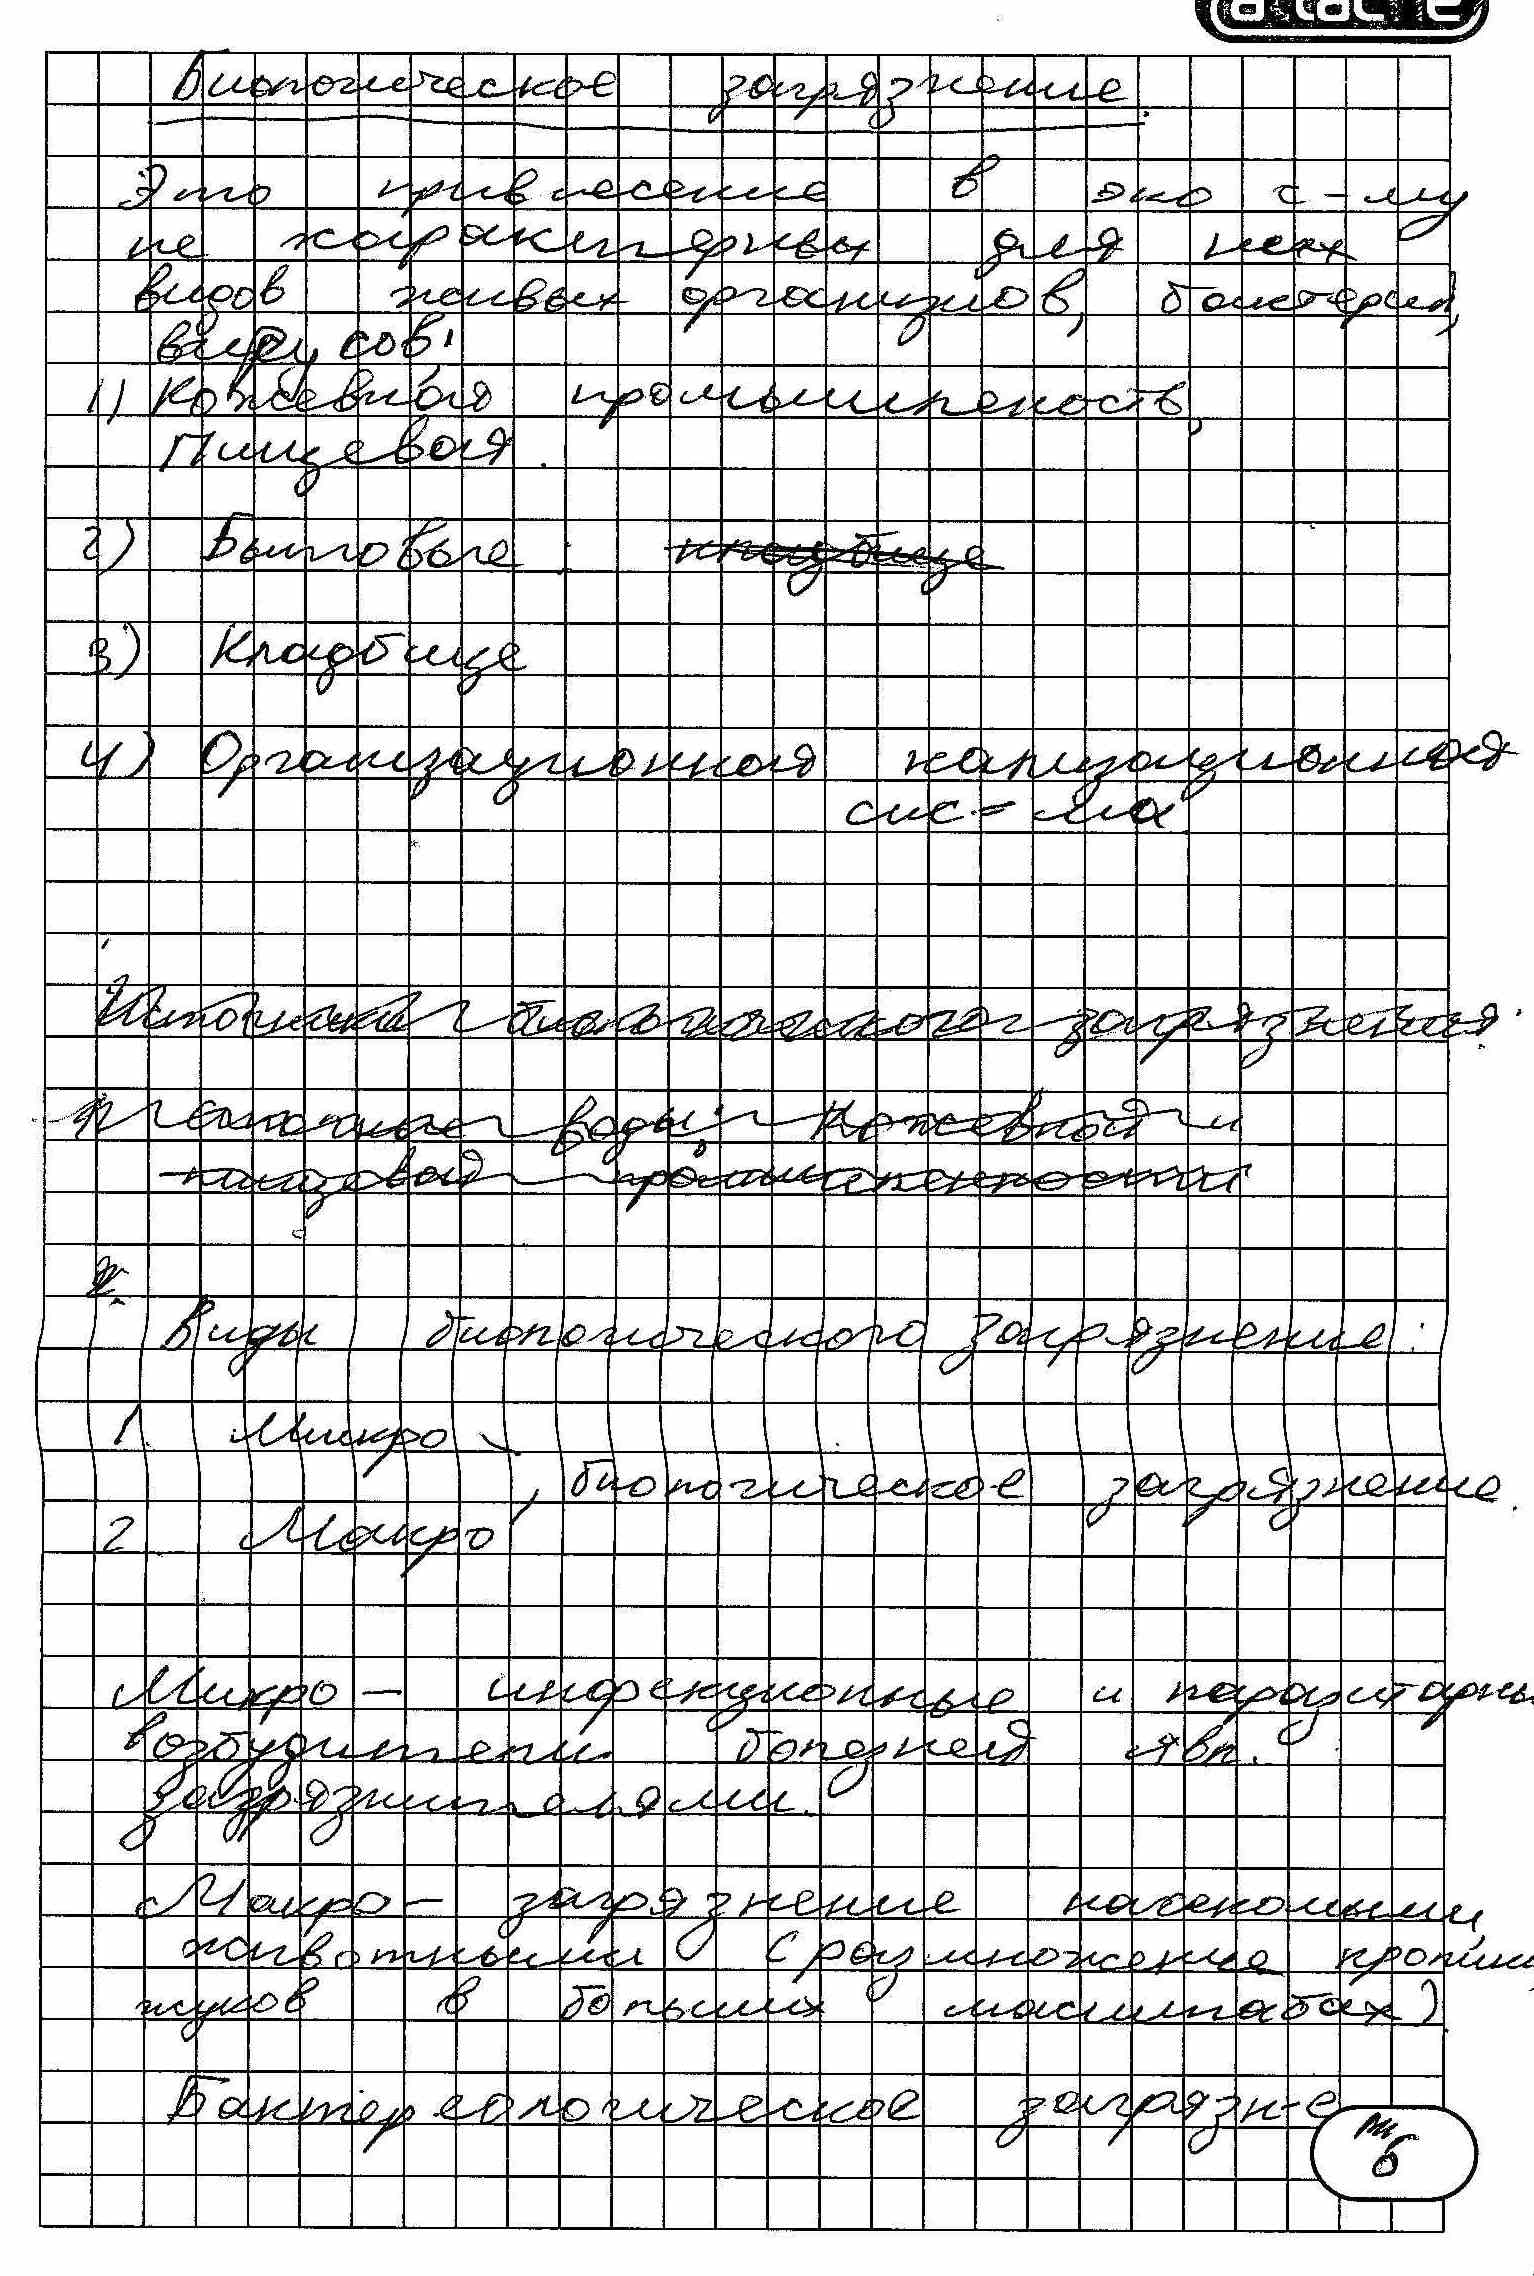 a·tache
Биологическое загрязнение.
Это привнесение в эко с-му
не характерных для неех
видов живых организмов, бактерий,
вирусов.
1) Кожевная промышленость,
Пищевая.
2) Бытовые: кладбище
3) Кладбище
4) Организационная кализационная
сис=ма
Источники биологического загрязнения:
сточные воды: Кожевной и
промышленности
Виды биологического загрязнение:
1. Микро
, биологическое загрязнение.
2 Макро
Микро – инфекционные и паразитарны
возбудители болезней явл.
загрязнителями.
Макро – загрязнение насекомыми,
животными (размножение кролик
жуков в больших масштабах).
Бактереологическое загрязн-е
6